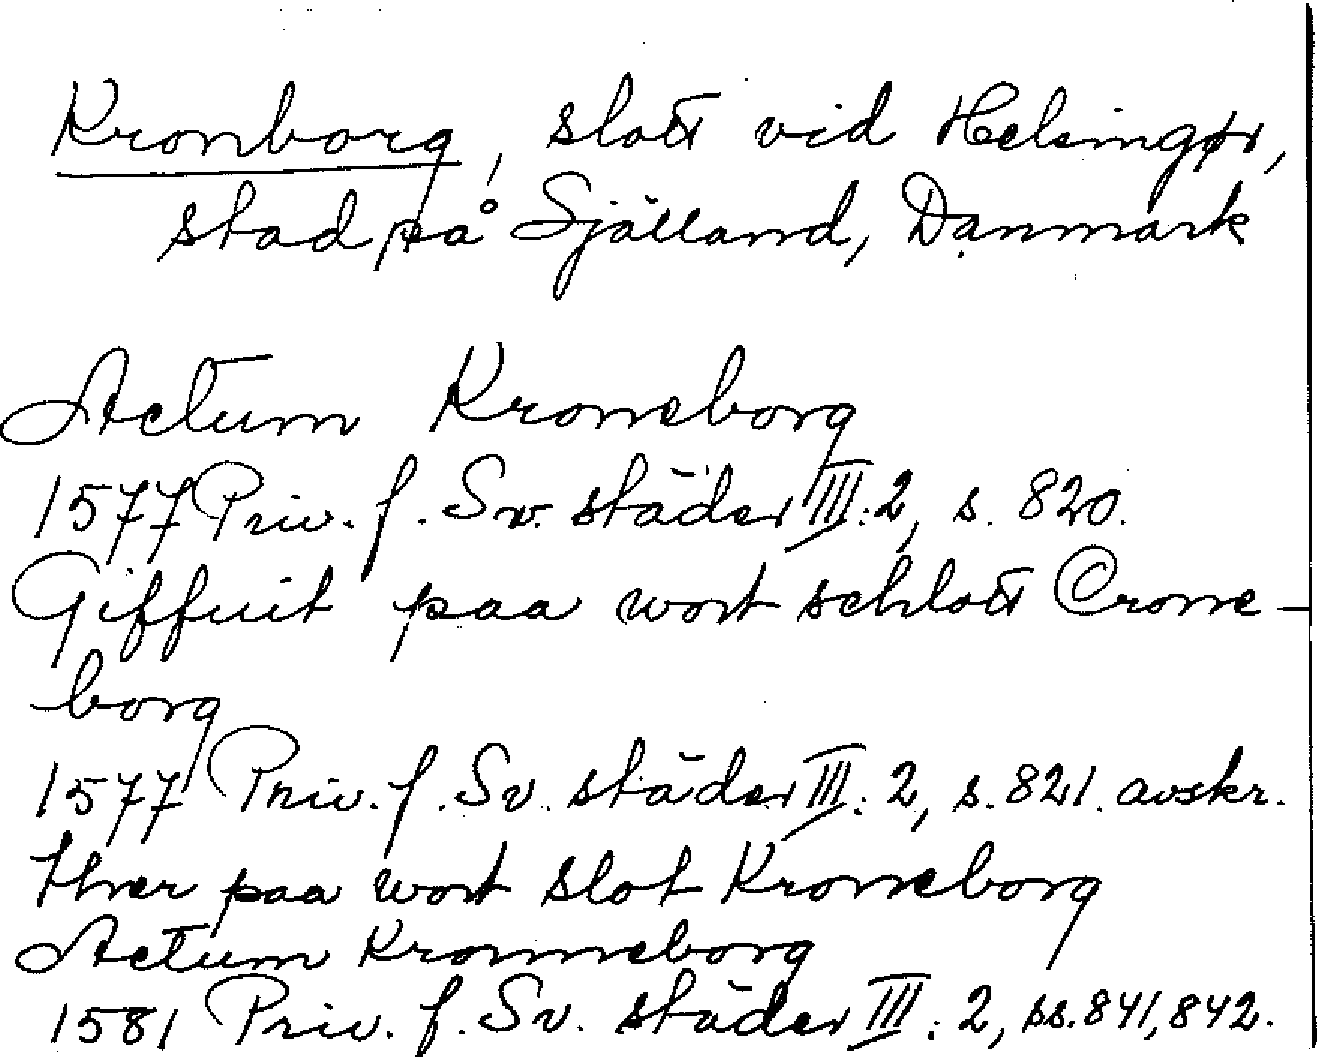 Kronborg, slott vid Helsingør,
stad på Själland, Danmark
Actum Kroneborg
1577 Priv. f. Sv. städer III:2, s. 820.
Giffuit paa wort schlott Crone-
borg
1577 Priv. f. Sv. städer III:2, s. 821. avskr.
paa wort slot Kroneborg
Actum Kronneborg
1581 Priv. f. Sv. städer III:2, ss. 841, 842.